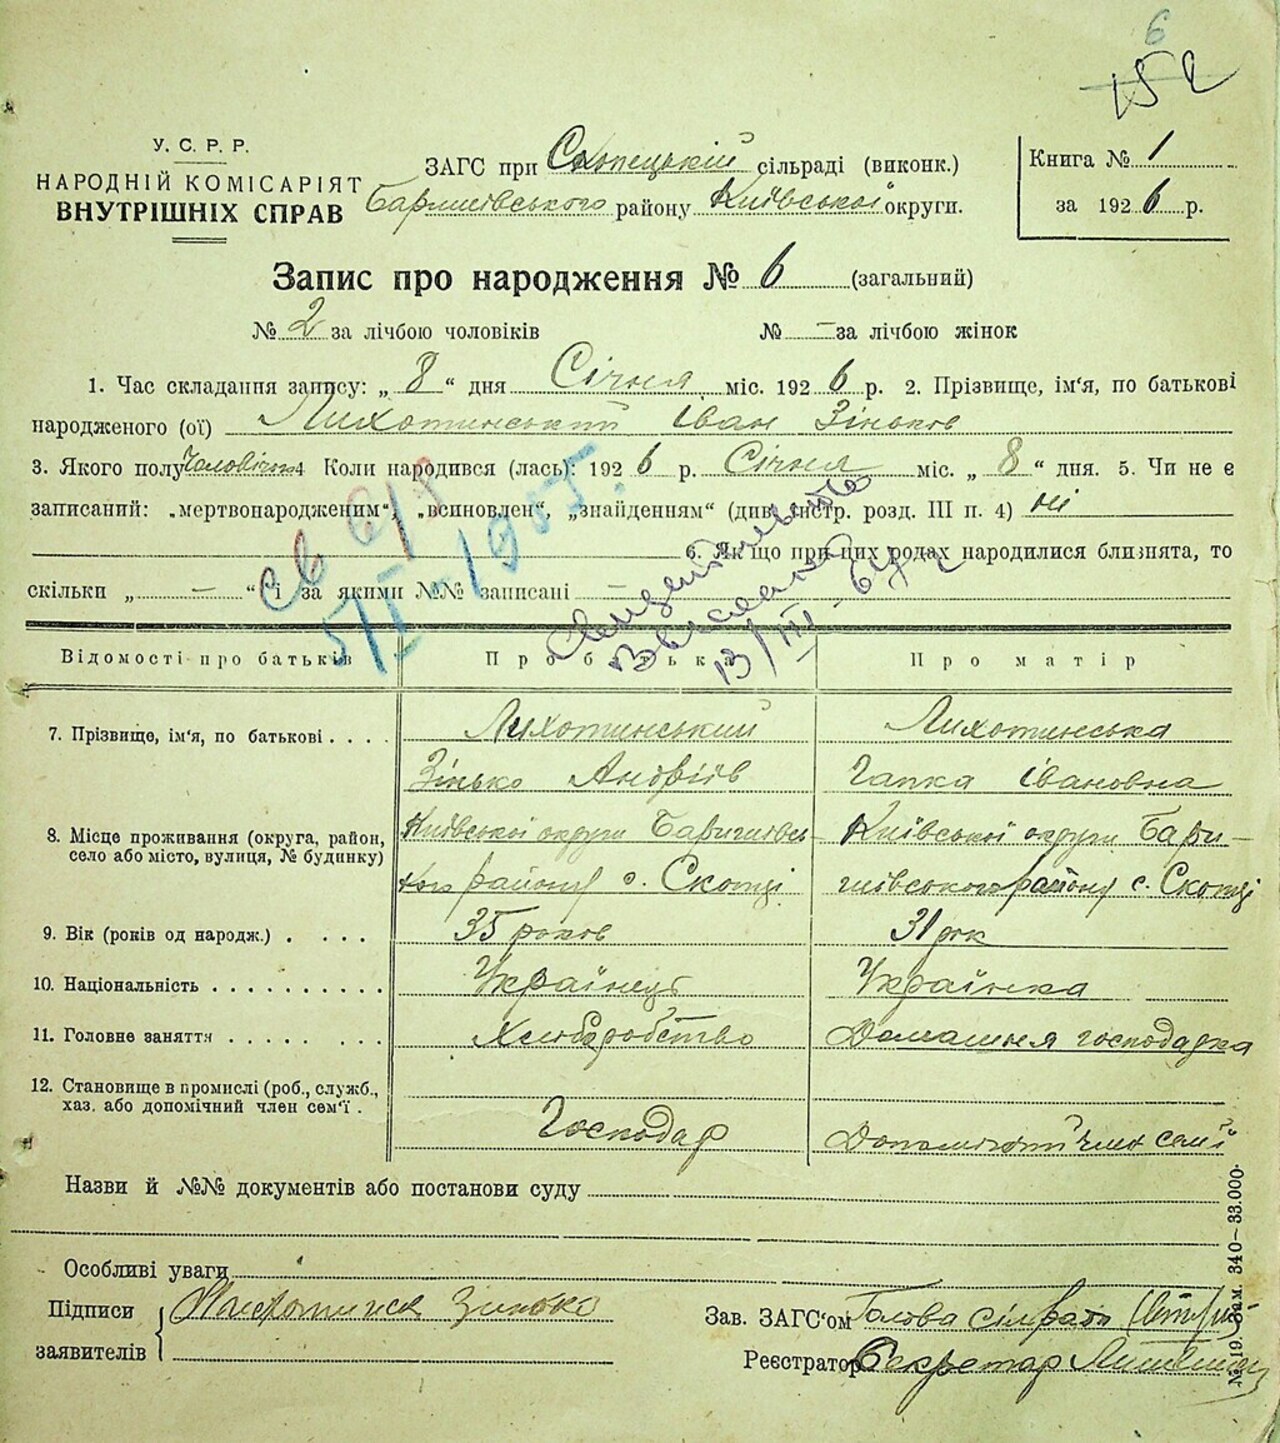 6
152
У. С. Р. Р.
НАРОДНІЙ КОМІСАРІЯТ
ВНУТРІШНІХ СПРАВ
ЗАГС при Скопецькій сільраді (виконк.)
Баришівського району Київської округи.
Книга № 1
за 1926 р.
Запис про народження № 6 (загальний)
№ 2 за лічбою чоловіків № — за лічбою жінок
1. Час складання запису: „ 8 “ дня Січня міс. 1926 р. 2. Прізвище, ім'я, по батькові
народженого (ої) Лихотинський Іван Зіньков
3. Якого полу Чоловіч. 4 Коли народився (лась): 1926 р. Січня міс. „ 8 “ дня. 5. Чи не є
записаний: „мертвонародженим“, „всиновлен“, „знайденням“ (див. інстр. розд. III п. 4) ні
6. Як що при цих родах народилися близнята, то
скільки „ — “ і за якими №№ записані —
св 6/8
5/II 1955.
13/III
Відомості про батьків Про батька Про матір
7. Прізвище, ім'я, по батькові . . . . Лихотинський Лихотинська
Зінько Андріїв Гапка Івановна
8. Місце проживання (округа, район, село або місто, вулиця, № будинку) Київської округи Баришівсь- Київської округи Бари-
кого району с. Скопці шівського району с. Скопці
9. Вік (років од народж.) . . . . 35 років 31 рок
10. Національність . . . . . . . . . . Українець Українка
11. Головне заняття . . . . . . . . . Хліборобство Домашня господарка
12. Становище в промислі (роб., служб.,
хаз. або допомічний член сем'ї . Господар Допомічний член семї
Назви й №№ документів або постанови суду
Особливі уваги
Підписи
заявителів
Лихотинск Зинько
Зав. ЗАГС'ом Голова сілради
Реєстратор Секретар
№ 19. Зам. 340—33.000.